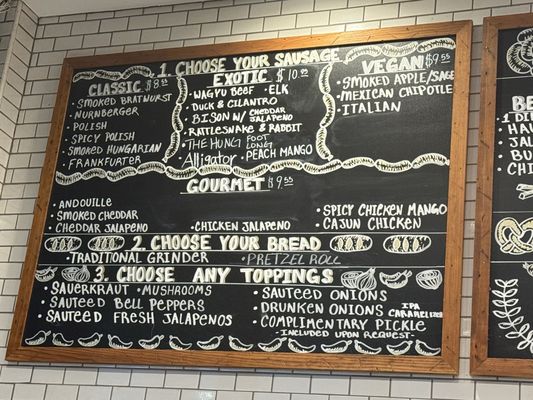 1. CHOOSE YOUR SAUSAGE
CLASSIC $8.95
SMOKED BRATWURST
NURNBERGER
POLISH
SPICY POLISH
SMOKED HUNGARIAN
FRANKFURTER
EXOTIC $10.95
WAGYU BEEF • ELK
DUCK & CILANTRO
BISON W/ CHEDDAR JALAPENO
RATTLESNAKE & RABBIT
THE HUNG FOOT LONG
Alligator • PEACH MANGO
VEGAN $9.55
• SMOKED APPLE/SAGE
• MEXICAN CHIPOTLE
• ITALIAN
GOURMET $9.55
• ANDOUILLE
• SMOKED CHEDDAR
• CHEDDAR JALAPENO
• CHICKEN JALAPENO
• SPICY CHICKEN MANGO
• CAJUN CHICKEN
2. CHOOSE YOUR BREAD
• TRADITIONAL GRINDER • PRETZEL ROLL
3. CHOOSE ANY TOPPINGS
• SAUERKRAUT • MUSHROOMS
• SAUTEED BELL PEPPERS
• SAUTEED FRESH JALAPENOS
• SAUTEED ONIONS
• DRUNKEN ONIONS IPA CARAMELIZED
• COMPLIMENTARY PICKLE
- INCLUDED UPON REQUEST -
BE
1 DI
HAU
JAL
BU
CHI